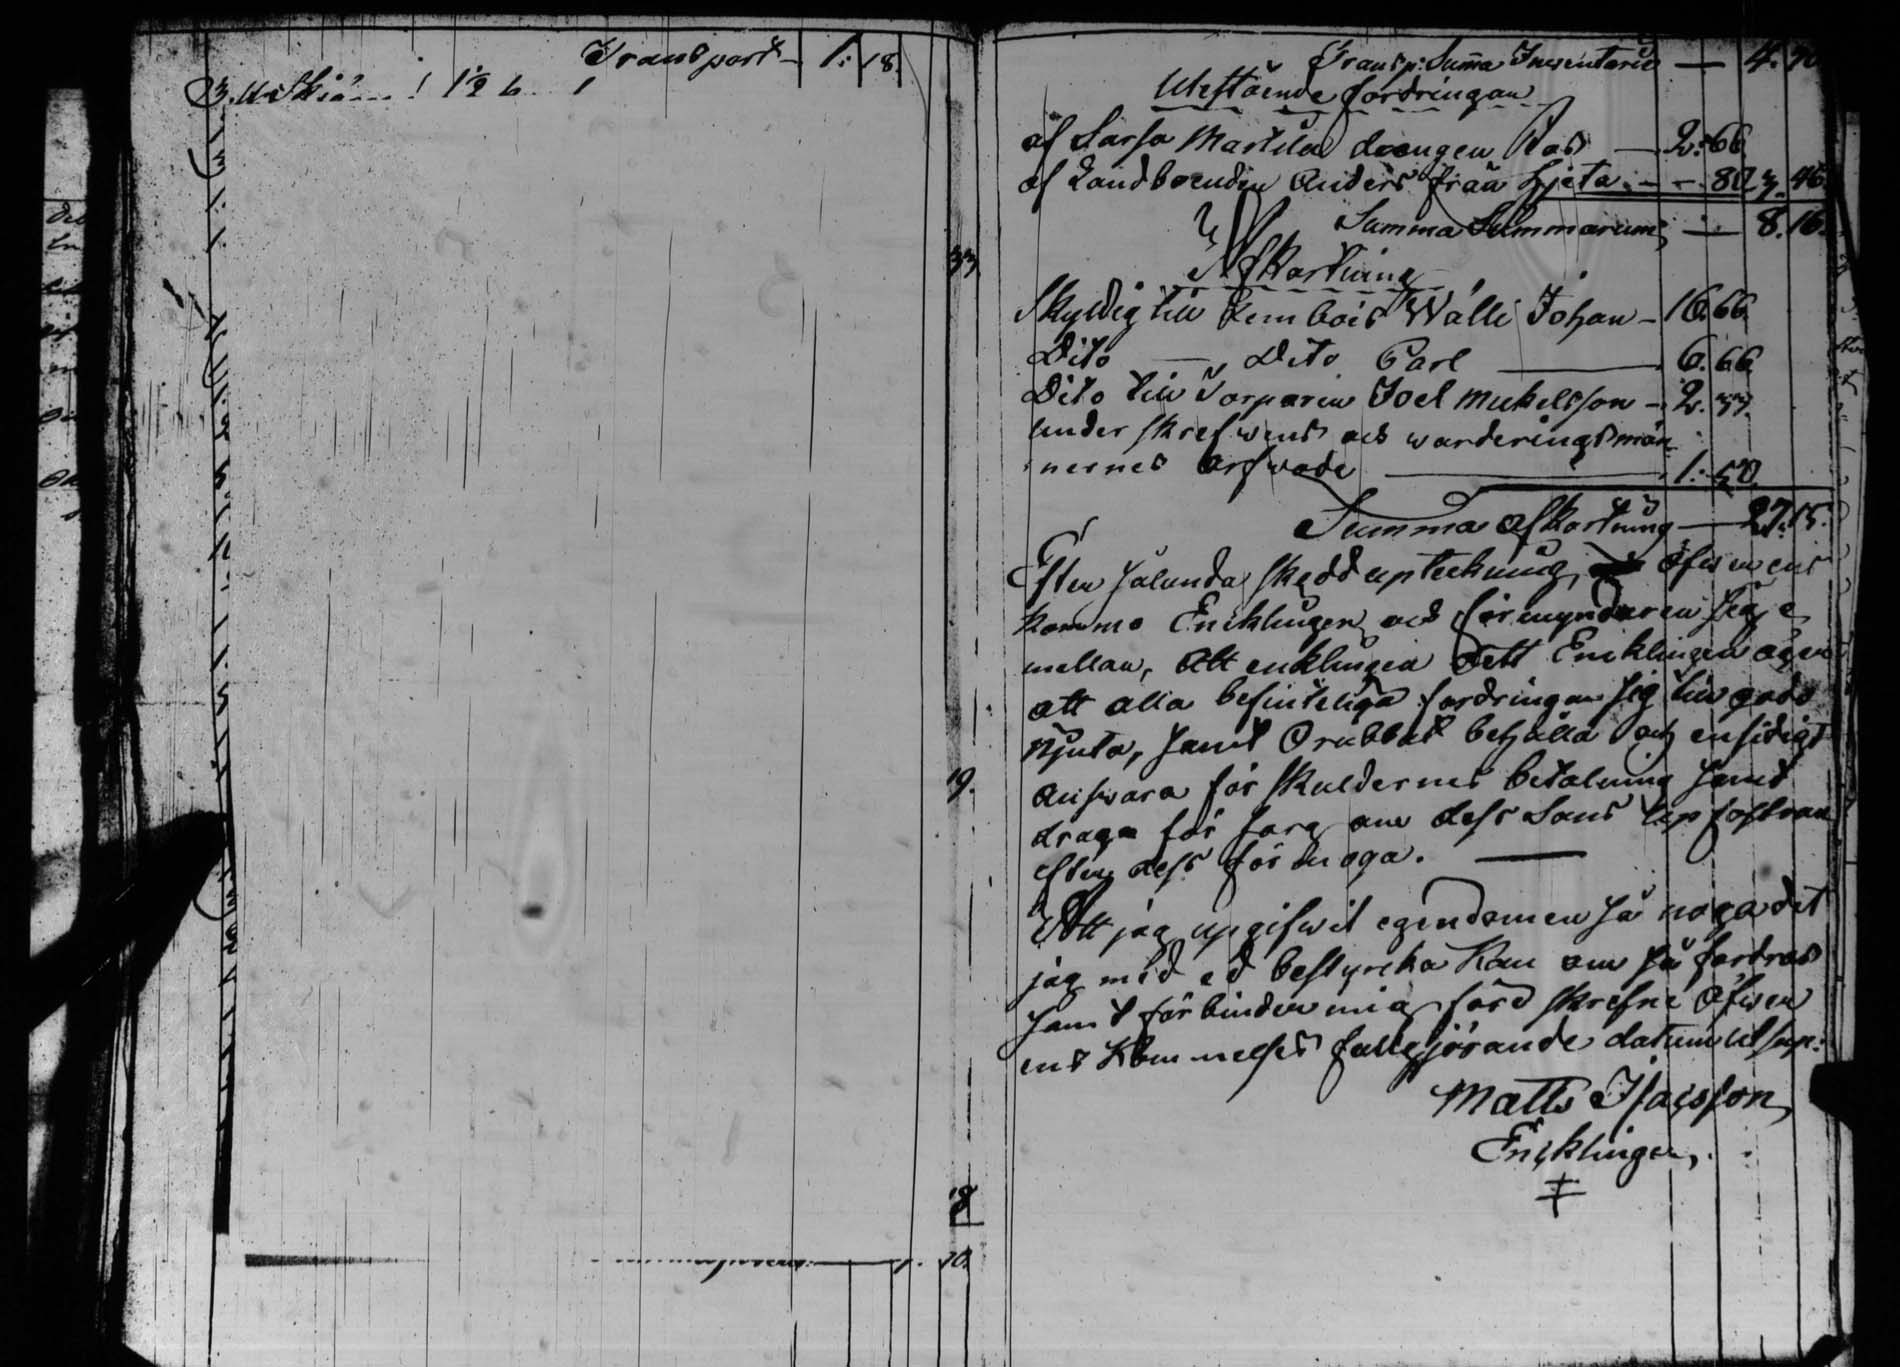 Transport — 1: 18.
Transp: Summa Inventarie — 4. 70
Utestående fordringar
af Larsa Martila drengen — 2: 66
af Landboenden Anders från Hjeta — 80 3. 46
Summa Summarum — 8. 16.
33
Afkortning
Skyldig till Kembois Wälli Johan — 16. 66.
Dito — Dito Carl — 6. 66
Dito till Torparen Joel Mickelsson — 2. 33.
under skrefwens och warderingsmän
nernes arfwode — 1: 50
Summa afkortning — 27. 15.
Efter sålunda skedd upteckning, öfwerens
kommo Encklingen och förmyndaren sig e
mellan, att enklingen att Encklingen äger
att alla befinteliga fordringar sig till godo
njuta, samt Orubbat behålla och ensidigt
19.
answara för skuldernes betalning samt
draga för sorg om dess Sons upfostran
efter dess förmoga. —
Att jag upgifwit egendomen så noga det
jag med ed bestyrcka kan om så fordras
samt förbinder mig före skrefne öfwer
ens kommelses fullgjörande datum ut supr:
Matts Isacsson
Encklingen.
8
70.